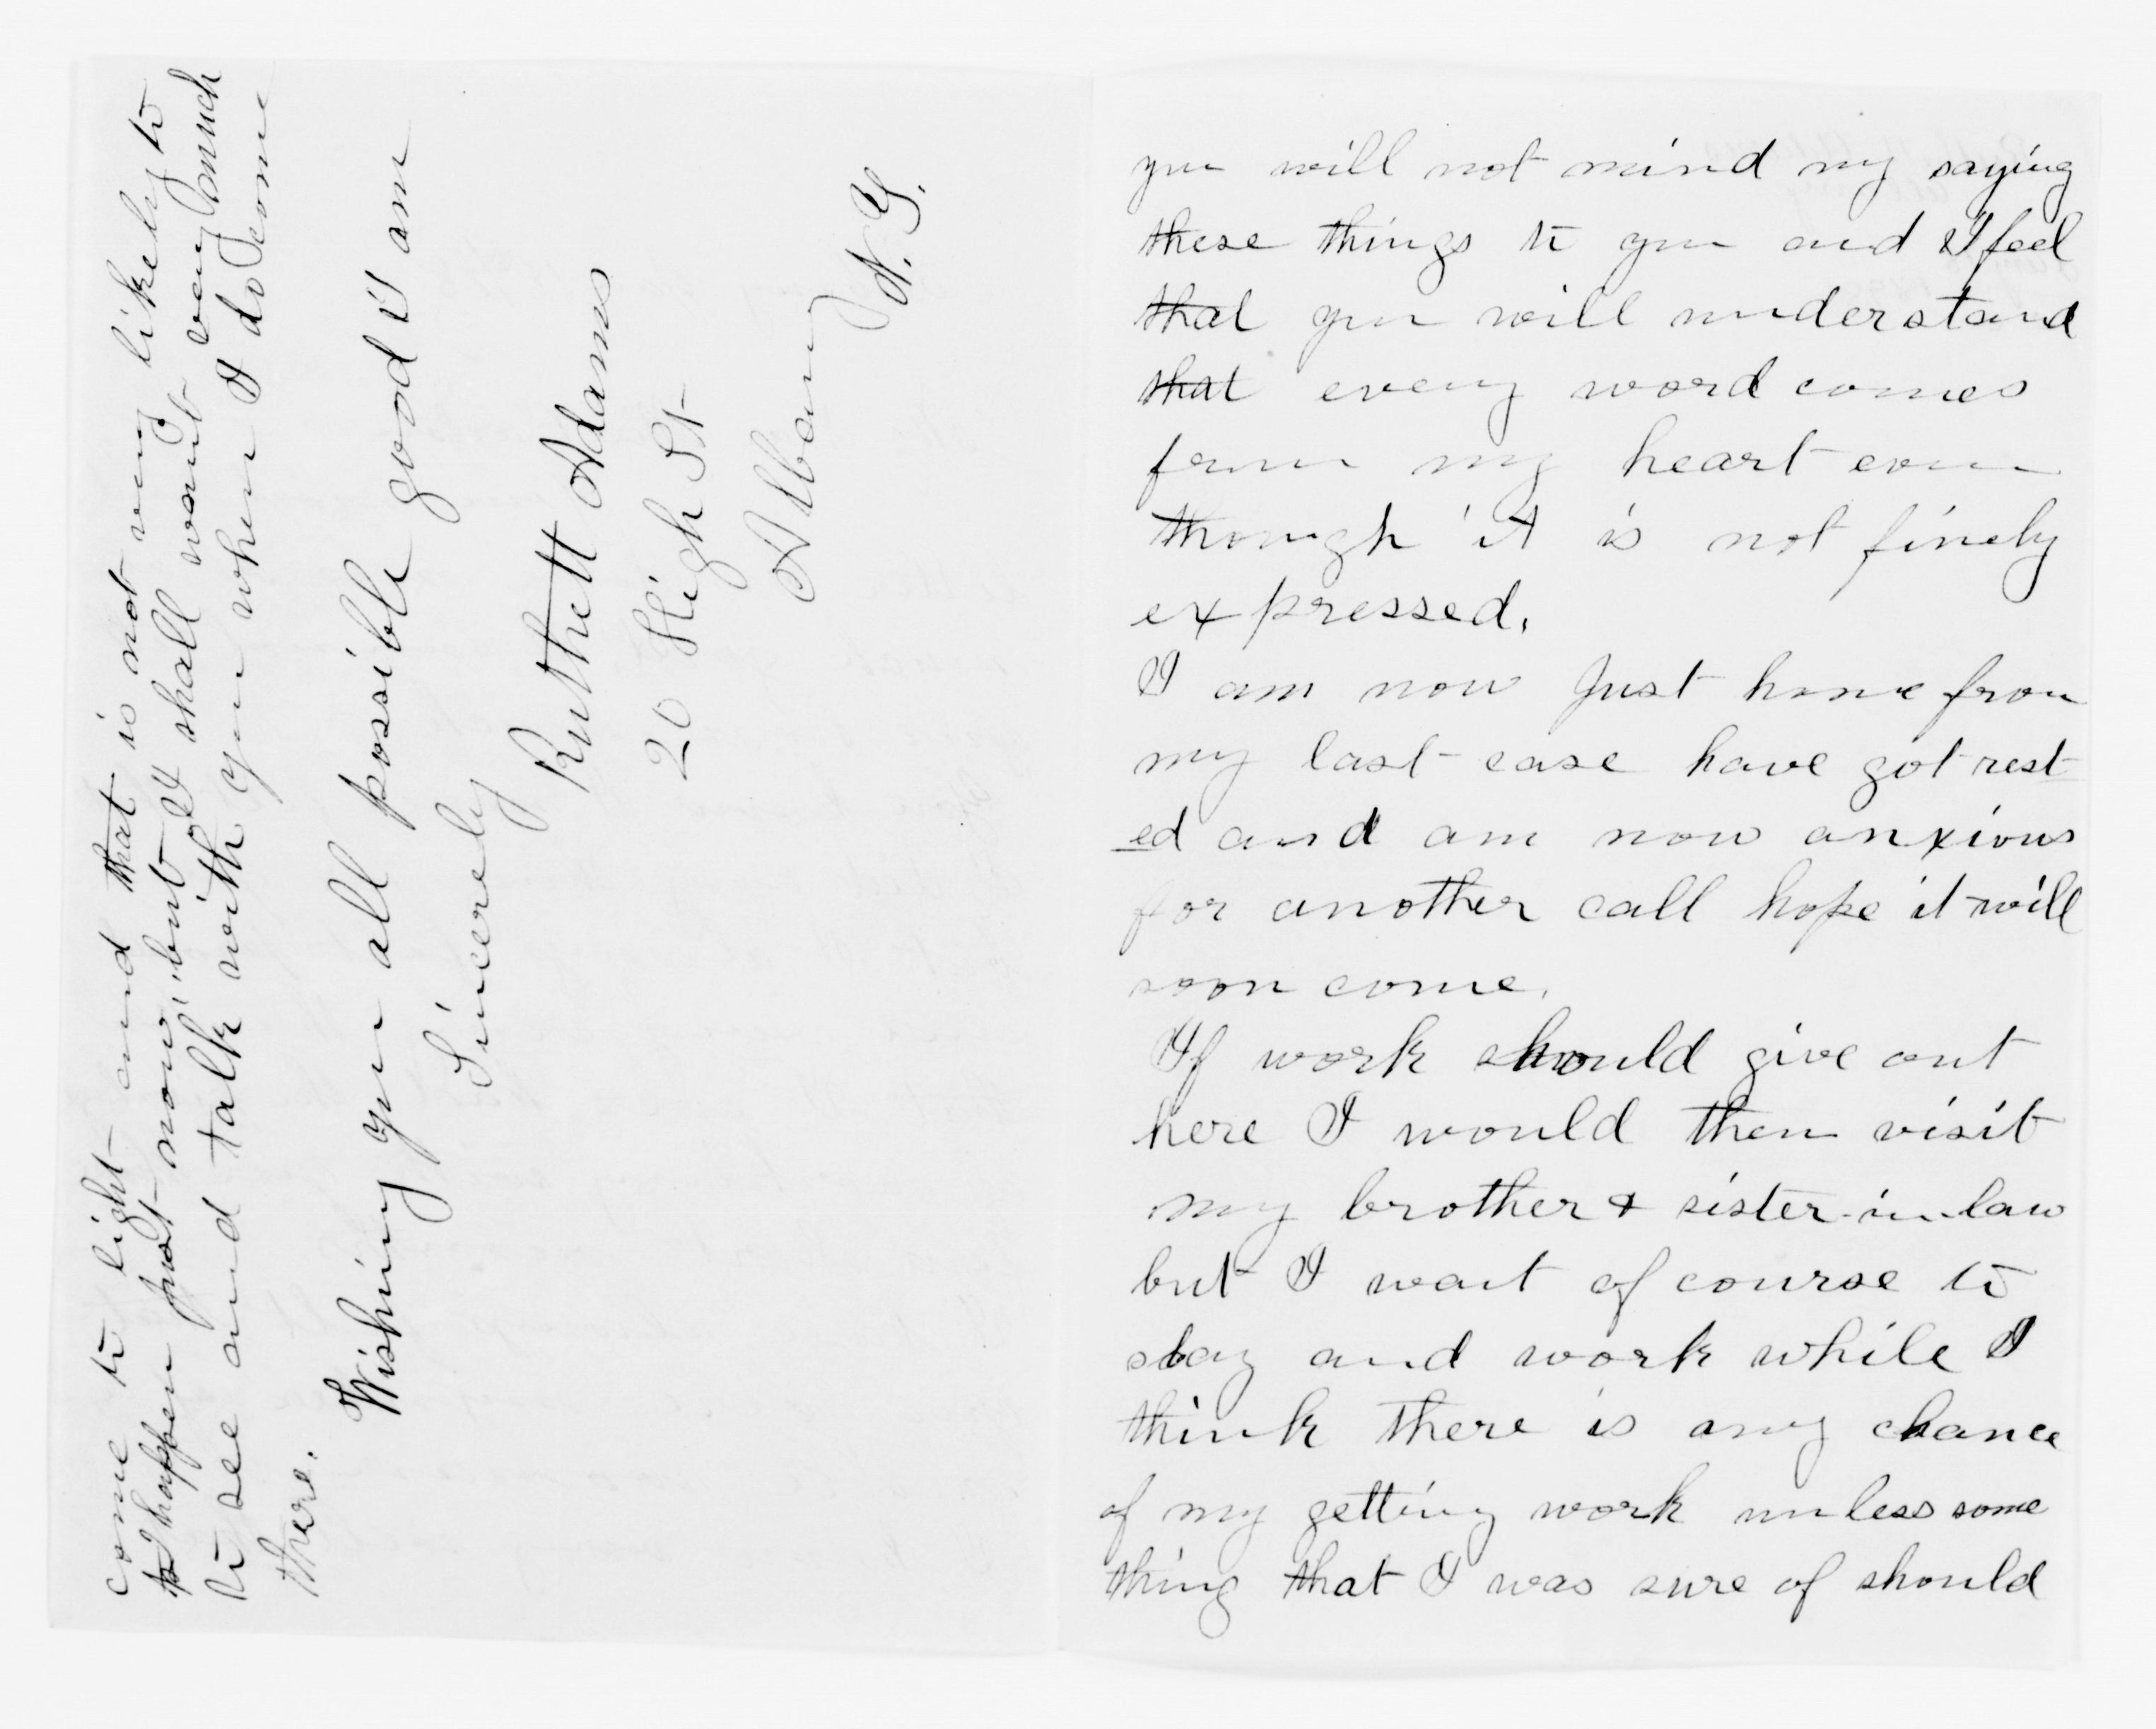 you will not mind my saying
these things to you and I feel
that you will understand
that every word comes
from my heart even
though it is not finely
expressed.
I am now just home from
my last case have got rest
ed and am now anxious
for another call hope it will
soon come.
If work should give out
here I would then visit
my brother & sister-in-law
but I want of course to
stay and work while I
think there is any chance
of my getting work unless some
thing that I was sure of should
come to light and that is not very likely to
happen just now but I shall want very much
to see and talk with you when I do come
there.
Wishing you all possible good I am
Sincerely
Ruthett Adams
20 High St
Albany
N. Y.